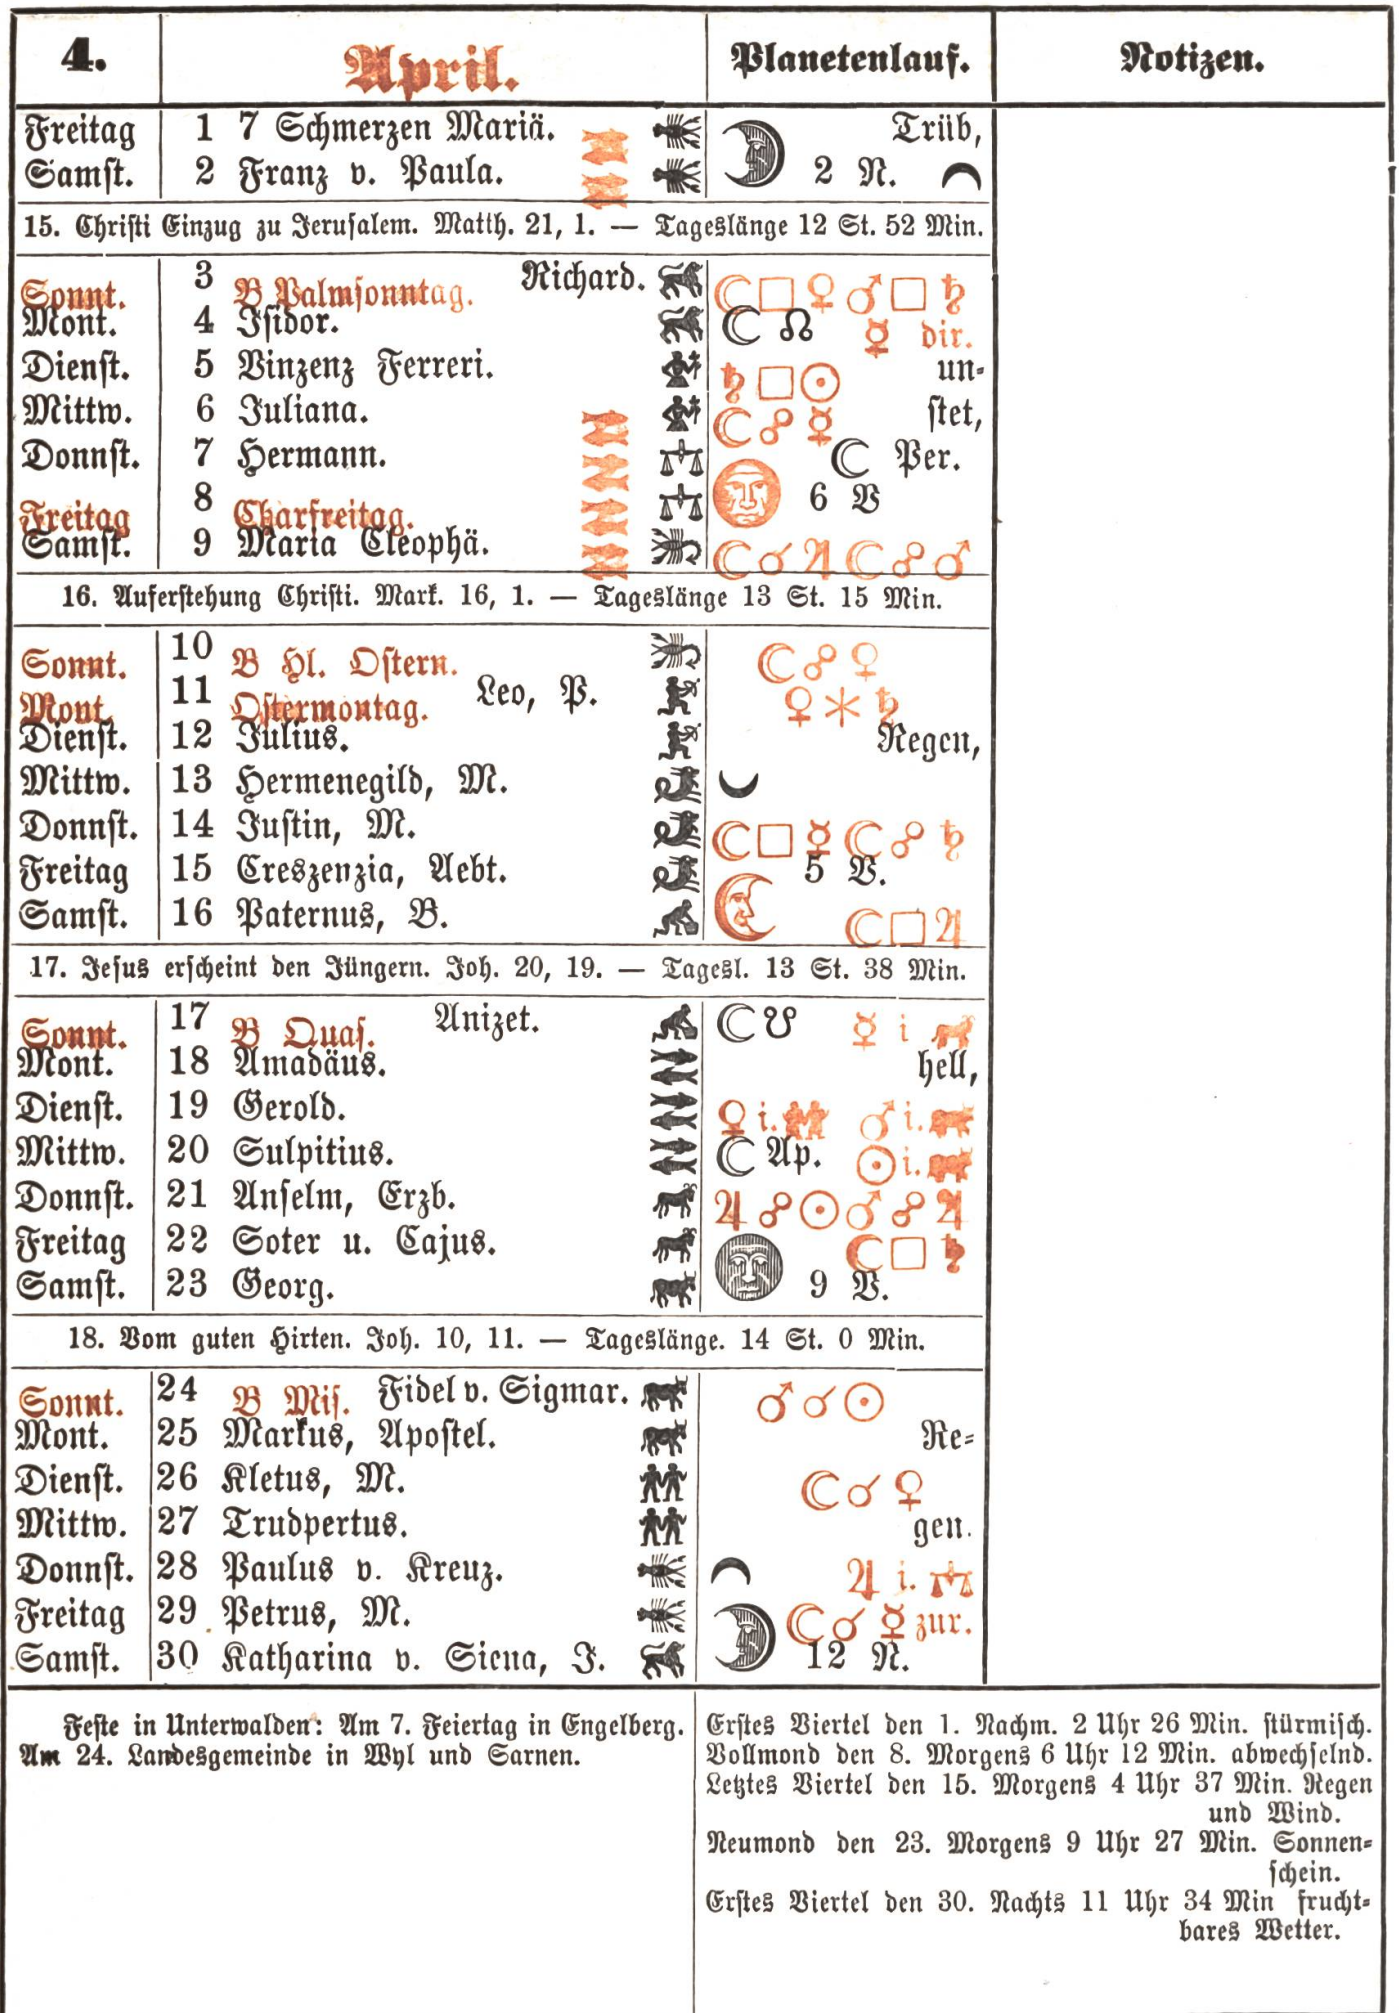 4. April. Planetenlauf. Notizen.
Freitag 1 7 Schmerzen Mariä. Trüb,
Samst. 2 Franz v. Paula. 2 N.
15. Christi Einzug zu Jerusalem. Matth. 21, 1. — Tageslänge 12 St. 52 Min.
Sonnt. 3 B Palmsonntag. Richard. ☾ □ ♀ ♂ □ ♄
Mont. 4 Isidor. ☾ ☊ ☿ dir.
Dienst. 5 Vinzenz Ferreri. ♄ □ ☉ un-
Mittw. 6 Juliana. ☾ ☍ ☿ stet,
Donnst. 7 Hermann. ☾ Per.
Freitag 8 Charfreitag. 6 V
Samst. 9 Maria Cleophä. ☾ ☌ ♃ ☾ ☍ ♂
16. Auferstehung Christi. Mark. 16, 1. — Tageslänge 13 St. 15 Min.
Sonnt. 10 B Hl. Ostern. ☾ ☍ ♀
Mont. 11 Ostermontag. Leo, P. ♀ ⚹ ♄
Dienst. 12 Julius. Regen,
Mittw. 13 Hermenegild, M.
Donnst. 14 Justin, M. ☾ □ ☿ ☾ ☍ ♄
Freitag 15 Creszenzia, Aebt. 5 V.
Samst. 16 Paternus, B. ☾ □ ♃
17. Jesus erscheint den Jüngern. Joh. 20, 19. — Tagesl. 13 St. 38 Min.
Sonnt. 17 B Quas. Anizet. ☾ ☋ ☿ i
Mont. 18 Amadäus. hell,
Dienst. 19 Gerold. ♀ i. ♂ i.
Mittw. 20 Sulpitius. ☾ Ap. ☉ i.
Donnst. 21 Anselm, Erzb. ♃ ☍ ☉ ♂ ☍ ♃
Freitag 22 Soter u. Cajus. ☾ □ ♄
Samst. 23 Georg. 9 V.
18. Vom guten Hirten. Joh. 10, 11. — Tageslänge. 14 St. 0 Min.
Sonnt. 24 B Mis. Fidel v. Sigmar. ♂ ☌ ☉
Mont. 25 Markus, Apostel. Re-
Dienst. 26 Kletus, M. ☾ ☌ ♀
Mittw. 27 Trudpertus. gen.
Donnst. 28 Paulus v. Kreuz. ♃ i.
Freitag 29 Petrus, M. ☾ ☌ ☿ zur.
Samst. 30 Katharina v. Siena, J. 12 N.
Feste in Unterwalden: Am 7. Feiertag in Engelberg.
Am 24. Landesgemeinde in Wyl und Sarnen.
Erstes Viertel den 1. Nachm. 2 Uhr 26 Min. stürmisch.
Vollmond den 8. Morgens 6 Uhr 12 Min. abwechselnd.
Letztes Viertel den 15. Morgens 4 Uhr 37 Min. Regen
und Wind.
Neumond den 23. Morgens 9 Uhr 27 Min. Sonnen-
schein.
Erstes Viertel den 30. Nachts 11 Uhr 34 Min frucht-
bares Wetter.